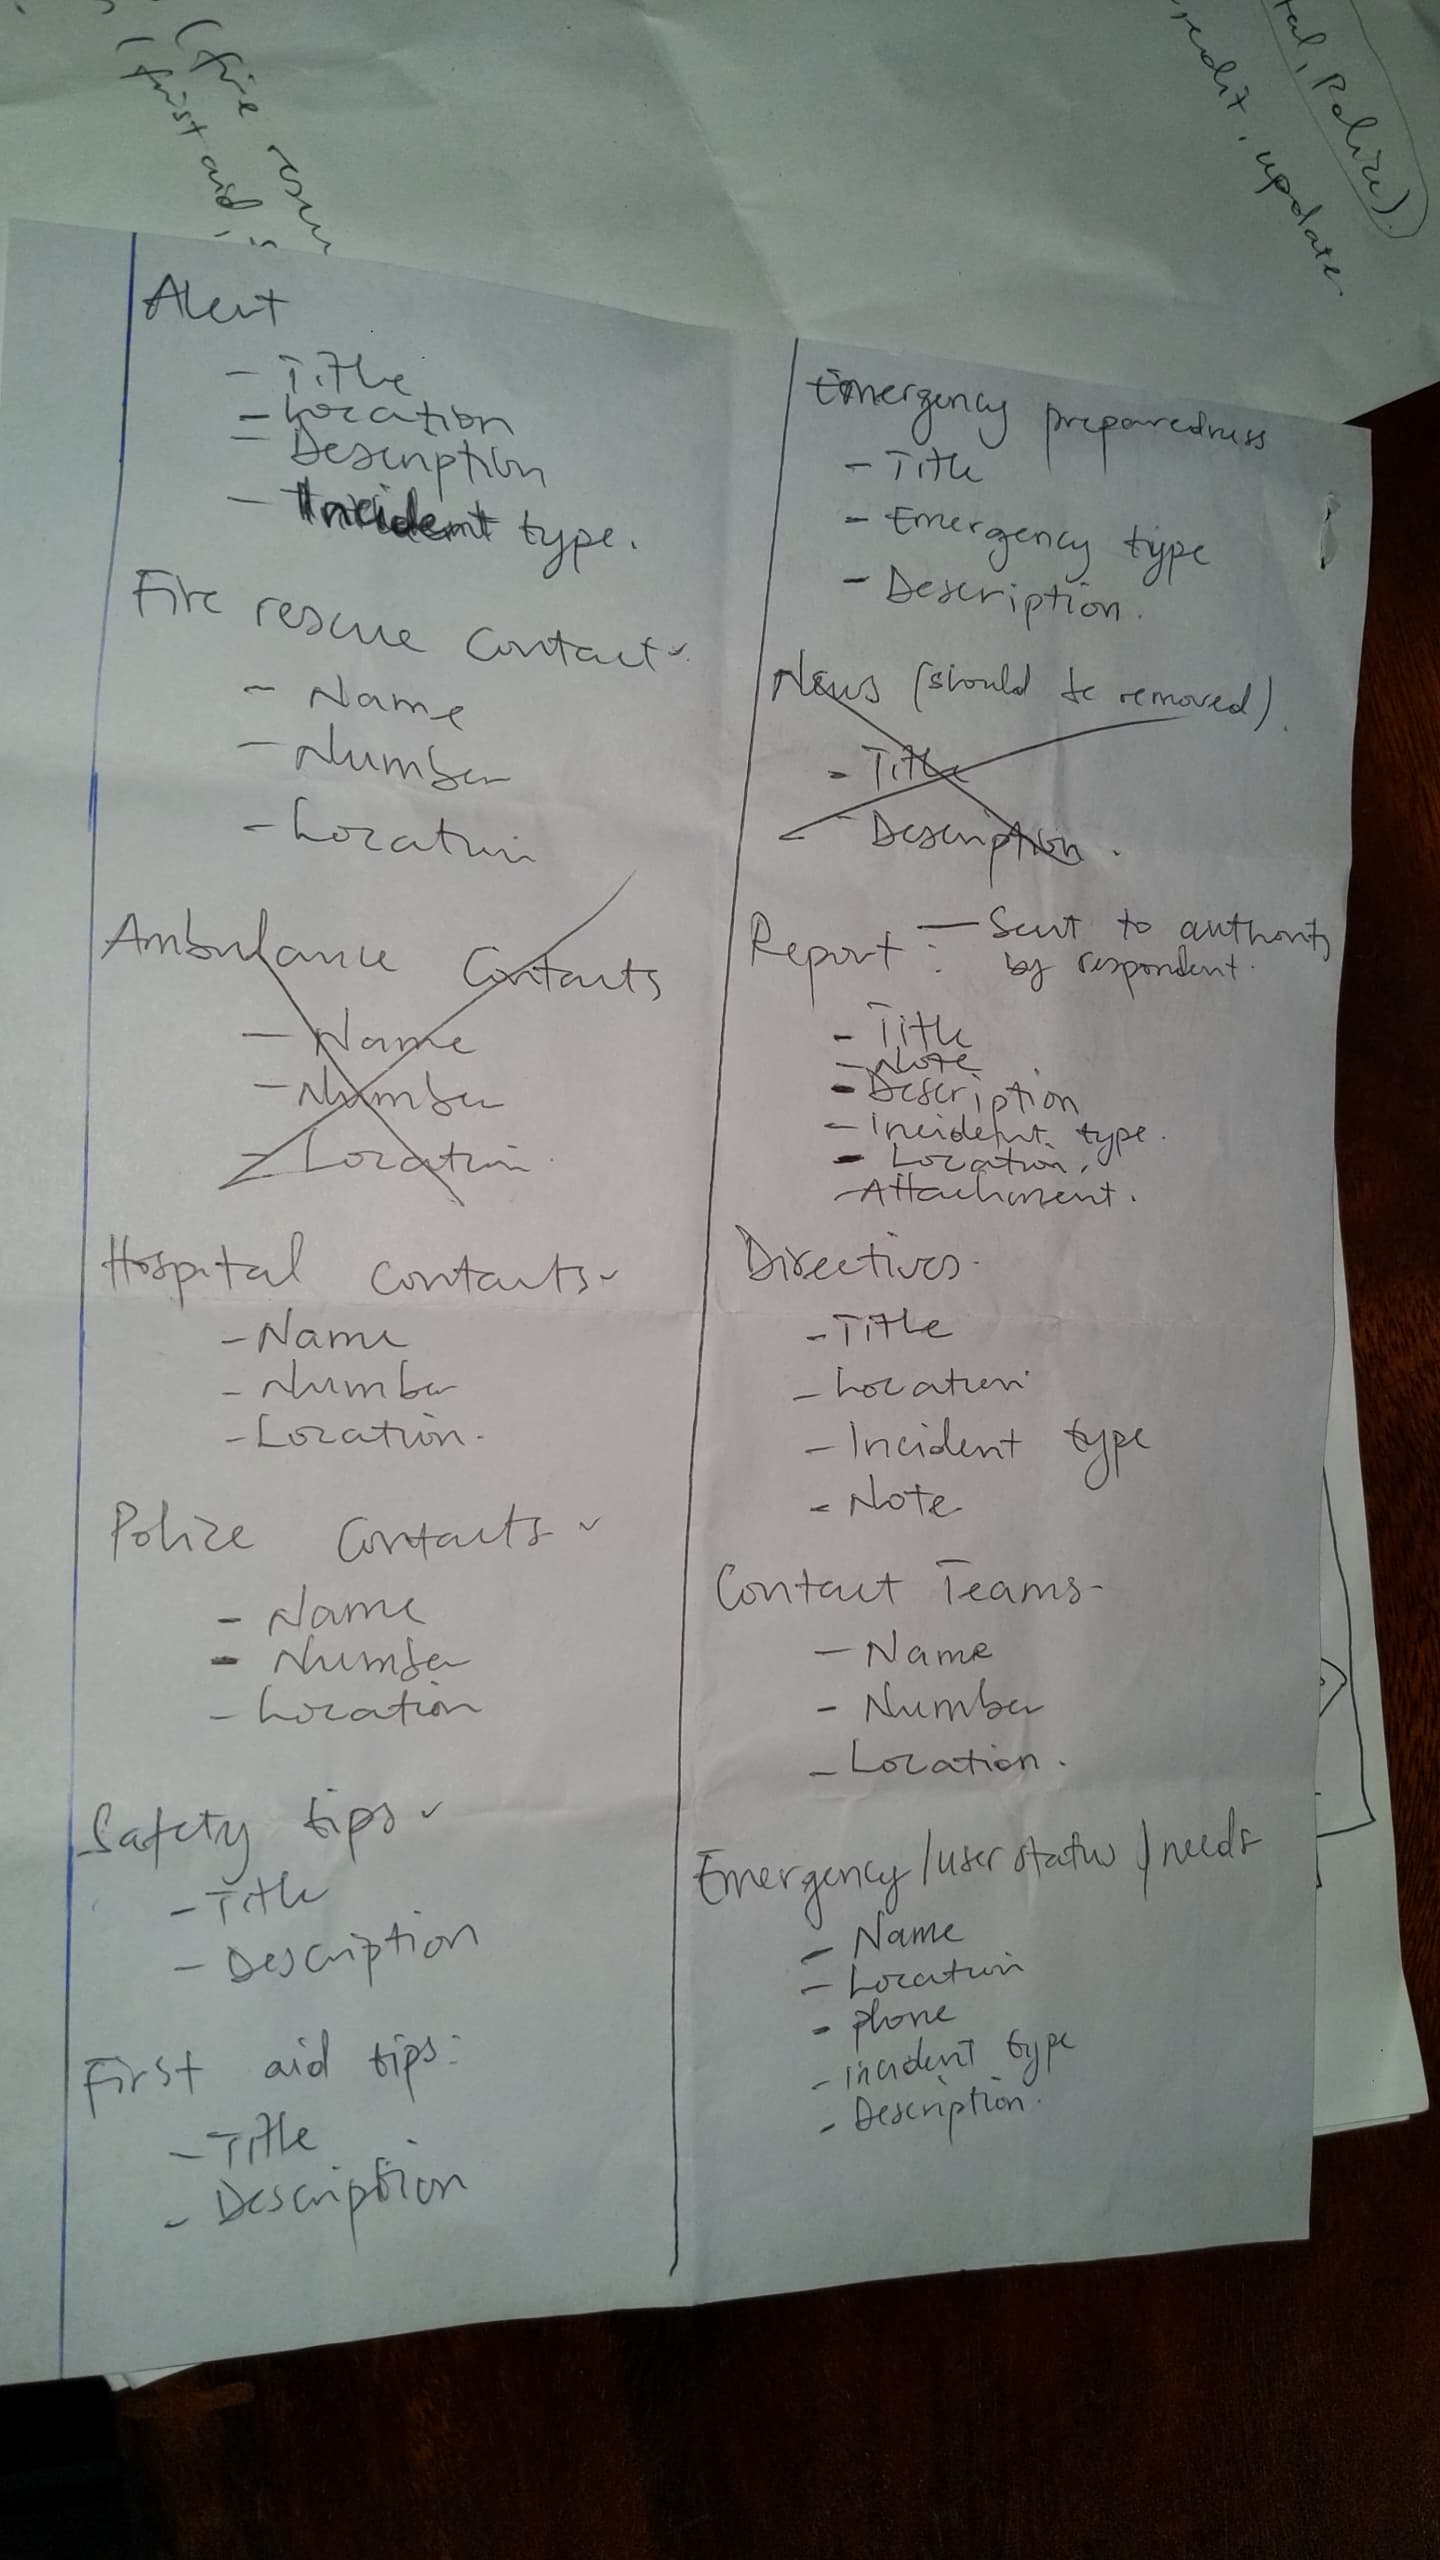 (fire
(first aid,
tal, Police).
edit, update
Alert
- Title
- Location
- Description
- Incident type.
Fire rescue Contact
- Name
- Number
- Location
Ambulance Contacts
- Name
- Number
- Location
Hospital Contacts
- Name
- Number
- Location.
Police Contacts
- Name
- Number
- Location
Safety tips
- Title
- Description
First aid tips:
- Title
- Description
Emergency preparedness
- Title
- Emergency type
- Description.
News (should be removed).
- Title
- Description.
Report: - Sent to authority
by respondent.
- Title
- Note
- Description
- Incident type.
- Location.
- Attachment.
Directives.
- Title
- Location
- Incident type
- Note
Contact Teams-
- Name
- Number
- Location.
Emergency/user status/needs
- Name
- Location
- phone
- incident type
- Description.